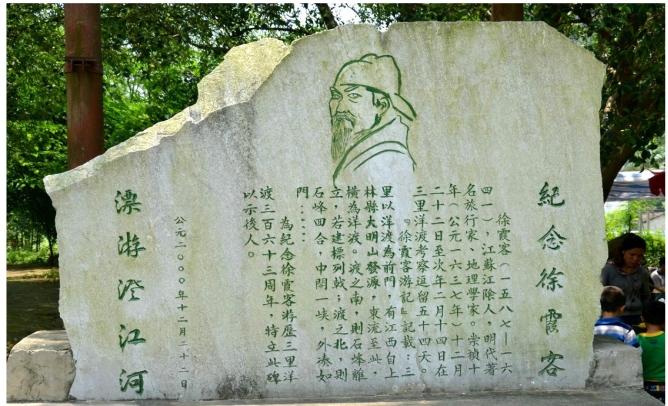 紀念徐霞客
徐霞客(一五八七—一六
四一),江蘇江陰人,明代著
名旅行家、地理學家。崇禎十
年(公元一六三七年)十二月
二十二日至次年二月十四日在
三里洋渡考察逗留五十四天。
《徐霞客游記》記載:三
里以洋渡為前門,有江西自上
林縣大明山發源,東流至此,
橫為洋渡。渡之南,則石峰離
立,若建標列戟;渡之北,則
石峰四合,中開一峽,外湊如
門……
為紀念徐霞客游歷三里洋
渡三百六十三周年,特立此碑
以示後人。
公元二〇〇〇年十二月二十二日
漂游澄江河